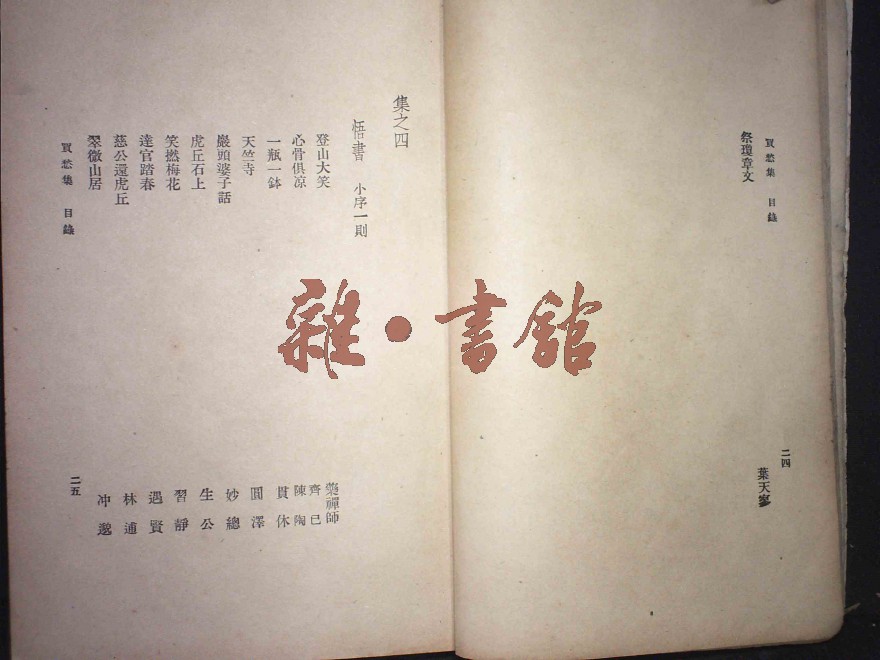 買愁集 目錄
祭瓊章文 葉天寥
二四
集之四
悟書 小序一則
登山大笑 藥禪師
心骨俱凉 齊已 陳陶
一瓶一鉢 貫休
天竺寺 圓澤
巖頭婆子話 妙總
虎丘石上 生公
笑撚梅花 習靜
達官踏春 遇賢
慈公還虎丘 林逋
翠微山居 冲邈
買愁集 目錄
二五
雜·書館